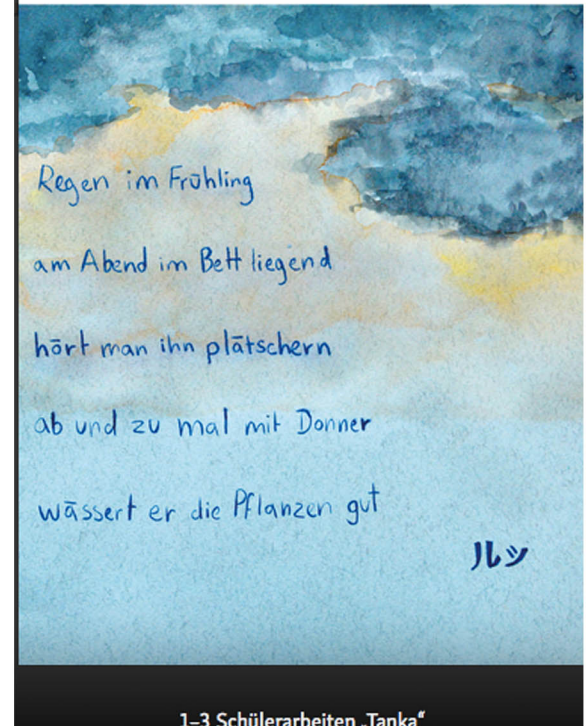 Regen im Frühling
am Abend im Bett liegend
hört man ihn plätschern
ab und zu mal mit Donner
wässert er die Pflanzen gut
ルッ
1–3 Schülerarbeiten „Tanka“